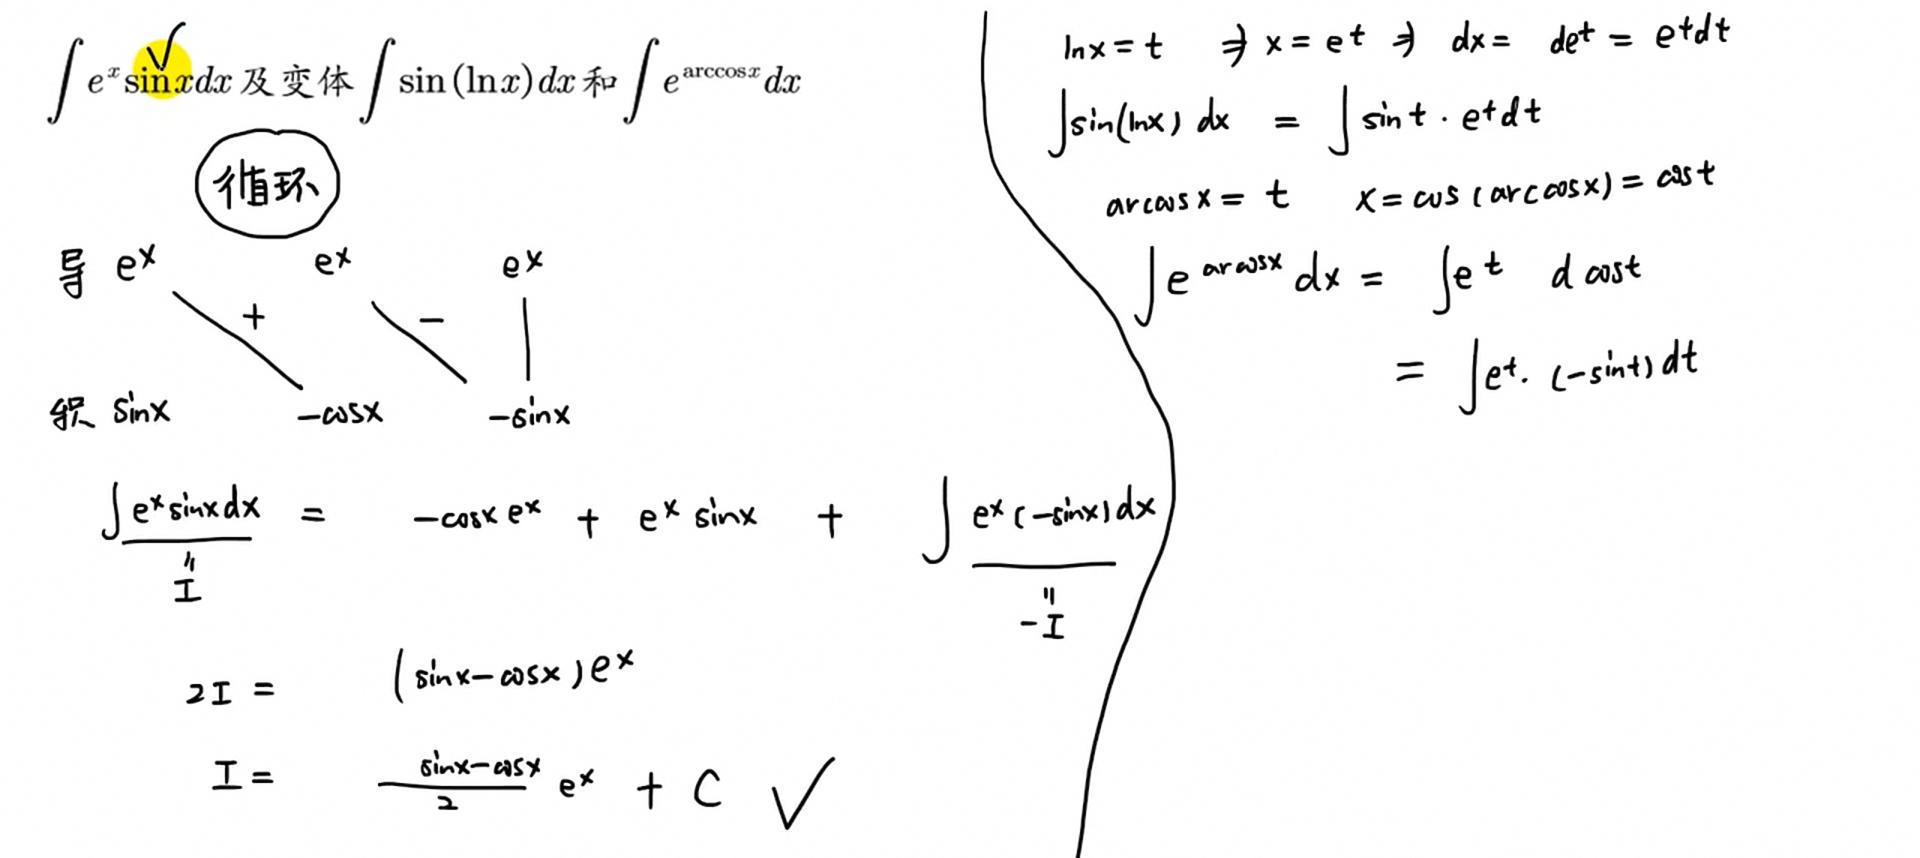 ∫ eˣ sin x dx 及变体 ∫ sin (ln x) dx 和 ∫ e^{arccos x} dx
循环
导 eˣ eˣ eˣ
+ −
积 sinx −cosx −sinx
∫ eˣ sinx dx = −cosx eˣ + eˣ sinx + ∫ eˣ (−sinx) dx
" "
I −I
2I = (sinx−cosx) eˣ
I = \frac{sinx−cosx}{2} eˣ + C ✓
lnx = t ⇒ x = eᵗ ⇒ dx = deᵗ = eᵗdt
∫ sin(lnx) dx = ∫ sint · eᵗdt
arccosx = t x = cos(arccosx) = cost
∫ e^{arccosx} dx = ∫ eᵗ d cost
= ∫ eᵗ · (−sint) dt